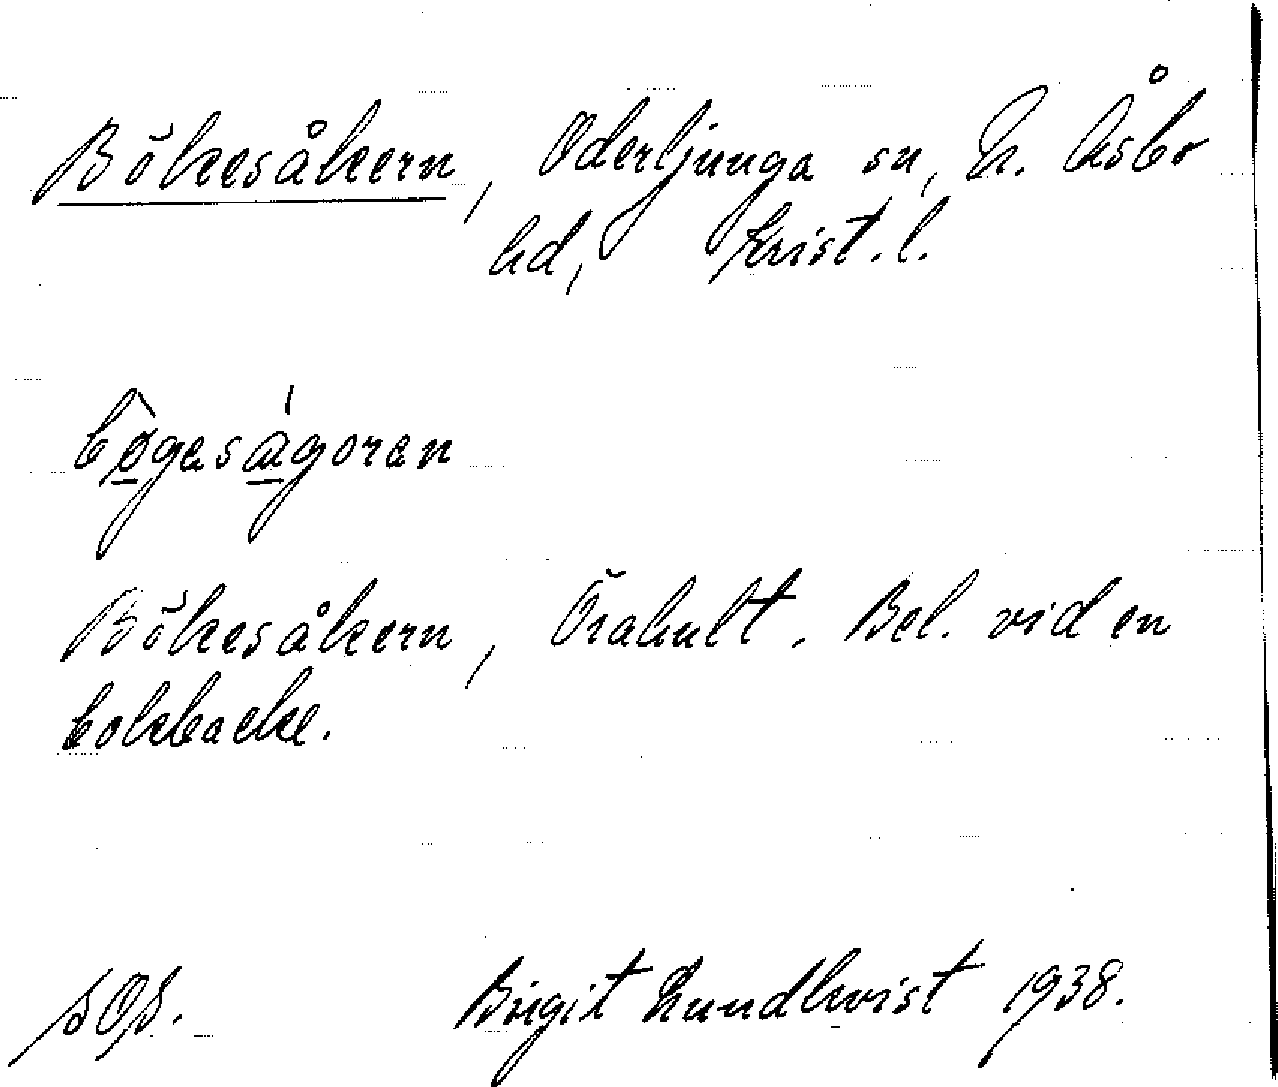 Bökesåkern, Oderljunga sn, N. Åsbo
hd, Krist. l.
bøgesågoren
Bökesåkern, Örahult. Bel. vid en
bokbacke.
SOS. Birgit Lundkvist 1938.